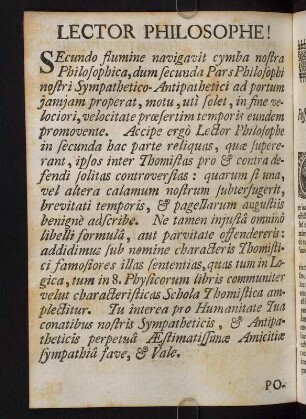 LECTOR PHILOSOPHE!
SEcundo flumine navigavit cymba noſtra
Philoſophica, dum ſecunda Pars Philoſophi
noſtri Sympathetico-Antipathetici ad portum
jamjam properat, motu, uti ſolet, in fine ve-
lociori, velocitate præſertim temporis eundem
promovente. Accipe ergò Lector Philoſophe
in ſecunda hac parte reliquas, quæ ſupere-
rant, ipſos inter Thomiſtas pro & contra de-
fendi ſolitas controverſias: quarum ſi una,
vel altera calamum noſtrum ſubterfugerit,
brevitati temporis, & pagellarum anguſtiis
benignè adſcribe. Ne tamen injuſtâ omninò
libelli formulâ, aut parvitate offendereris:
addidimus ſub nomine characteris Thomiſti-
ci famoſiores illas ſententias, quas tum in Lo-
gica, tum in 8. Phyſicorum libris communiter
velut characteriſticas Schola Thomiſtica am-
plectitur. Tu interea pro Humanitate Tua
conatibus noſtris Sympatheticis, & Antipa-
theticis perpetuâ Æſtimatiſſimæ Amicitiæ
ſympathiâ fave, & Vale.
PO-